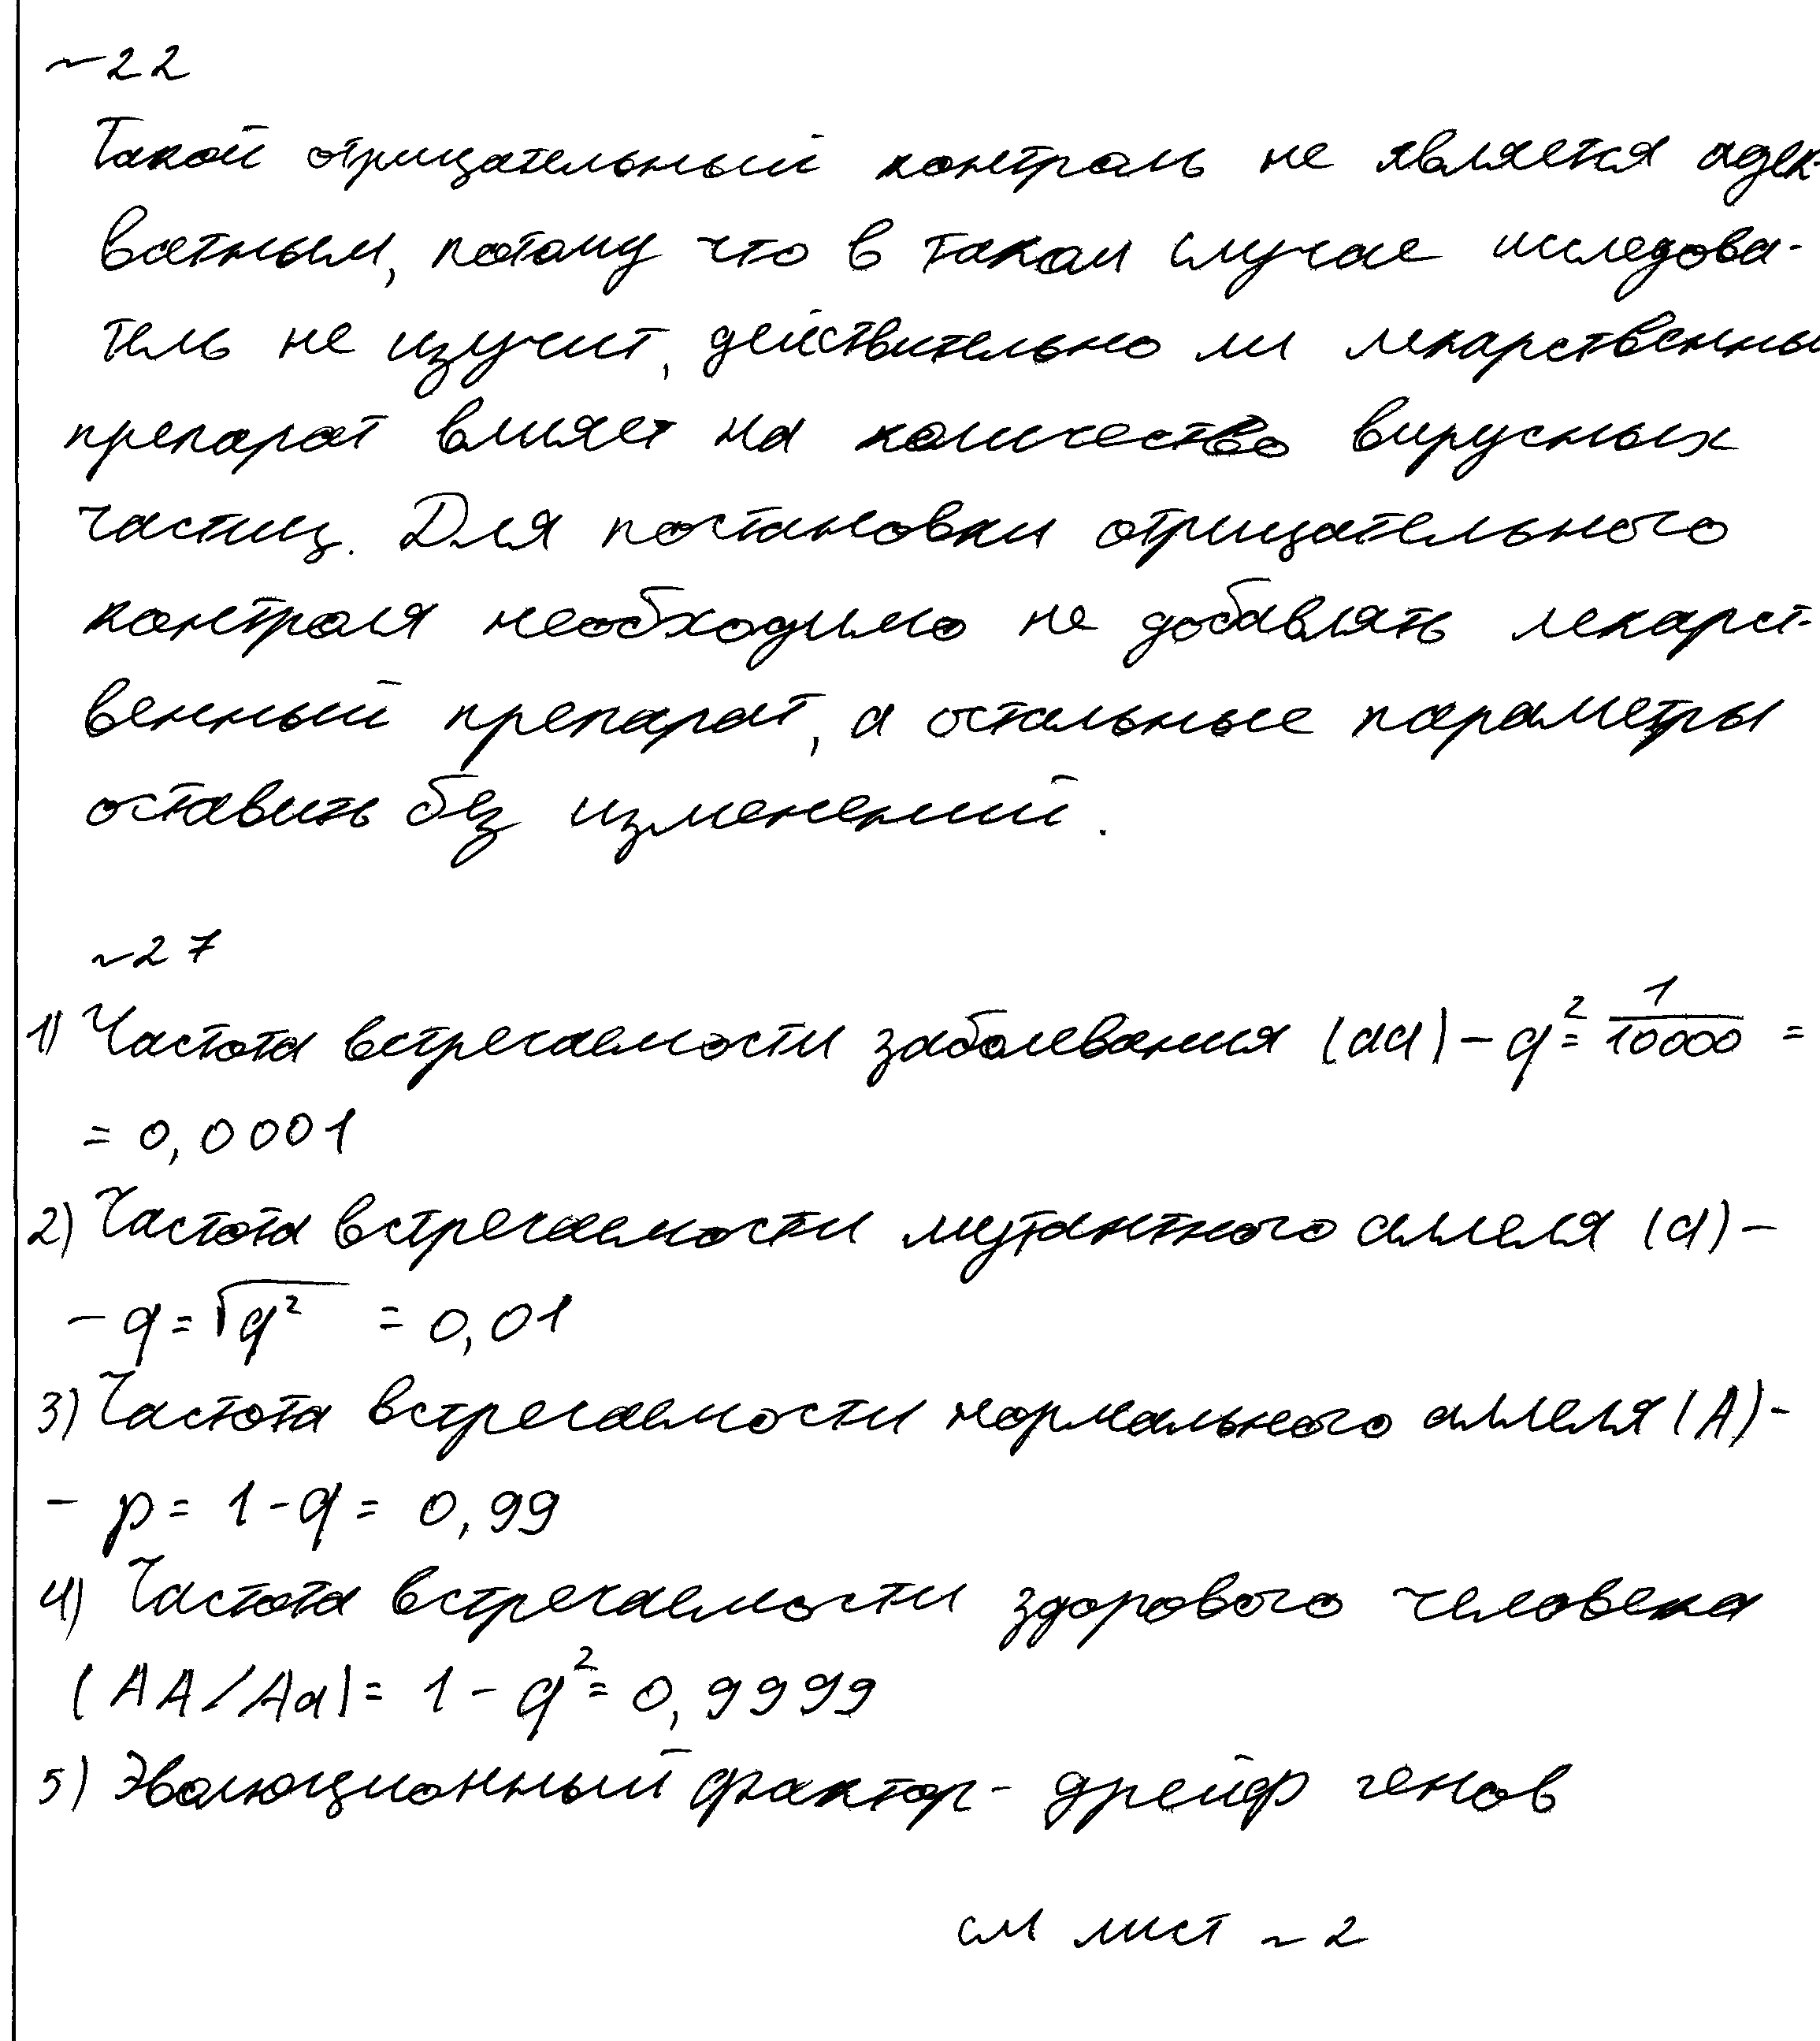 ~22
Такой отрицательный контроль не является адек-
ватным, потому что в таком случае исследова-
тель не изучит, действительно ли лекарственны
препарат влияет на количество вирусных
частиц. Для постановки отрицательного
контроля необходимо не добавлять лекарст-
венный препарат, а остальные параметры
оставить без изменений.
~27
1) Частота встречаемости заболевания (aa) - q² = 1/10000 =
= 0,0001
2) Частота встречаемости мутантного аллеля (a) -
- q = √q² = 0,01
3) Частота встречаемости нормального аллеля (A) -
- p = 1 - q = 0,99
4) Частота встречаемости здорового человека
(AA/Aa) = 1 - q² = 0,9999
5) Эволюционный фактор - дрейф генов
см лист ~2